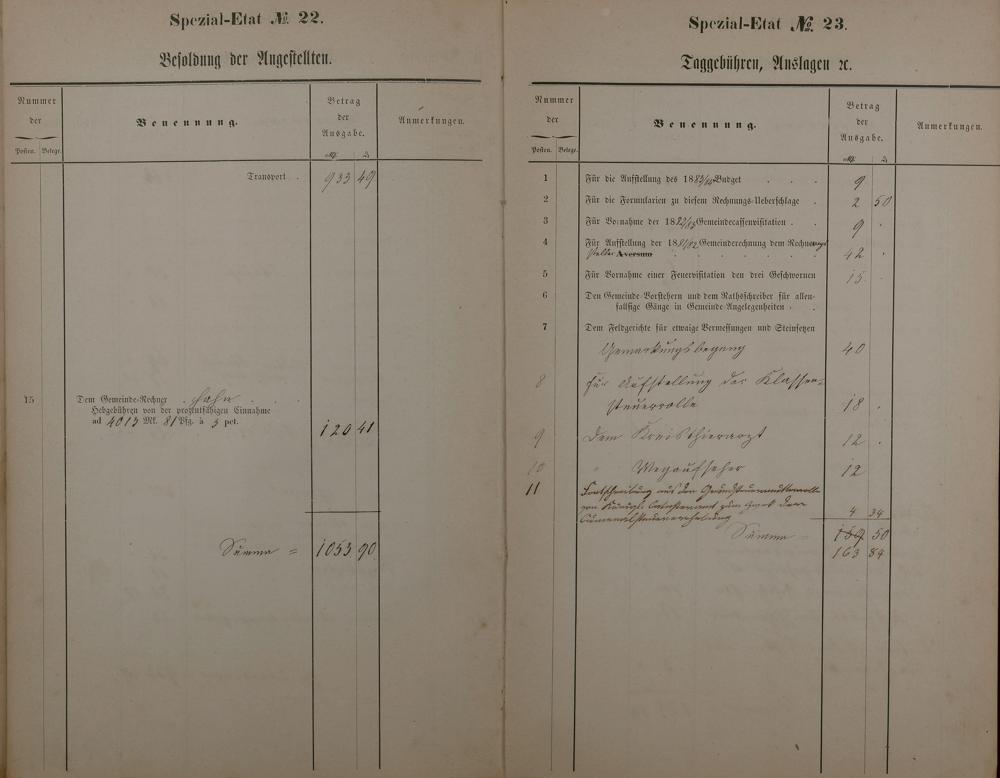 Spezial-Etat № 22.
Besoldung der Angestellten.
Nummer
der
Posten. Belege.
Benennung.
Betrag
der
Ausgabe.
ℳ ₰
Anmerkungen.
Transport . 933 49
15 Dem Gemeinde-Rechner Hahn
Hebgebühren von der prozentfähigen Einnahme
ad 4013 Mk. 81 Pfg. à 3 pct. 120 41
Summa = 1053 90
Spezial-Etat № 23.
Taggebühren, Auslagen ꝛc.
Nummer
der
Posten. Belege.
Benennung.
Betrag
der
Ausgabe.
ℳ ₰
Anmerkungen.
1 Für die Aufstellung des 1883/ Budget . . . 9
2 Für die Formularien zu diesem Rechnungs-Ueberschlage . 2 50
3 Für Vornahme der 1882/83 Gemeindecassenvisitation . 9 .
4 Für Aufstellung der 1881/82 Gemeinderechnung dem Rechnungs
steller Aversum . . . . . 42 .
5 Für Vornahme einer Feuervisitation den drei Geschwornen 15 .
6 Den Gemeinde-Vorstehern und dem Rathsschreiber für allen-
fallsige Gänge in Gemeinde-Angelegenheiten . .
7 Dem Feldgerichte für etwaige Vermessungen und Steinsetzen
Gemarkungsbegang 40
8 Für Aufstellung der Klassen-
steuerrolle 18 .
9 Dem Kreisthierarzt 12 .
10 " Wegaufseher 12
11 Fortschreibung aus der Grundsteuermutterrolle
von Königl. Katasteramt zum Zweck der
4 34
Summa = 159 50
163 84